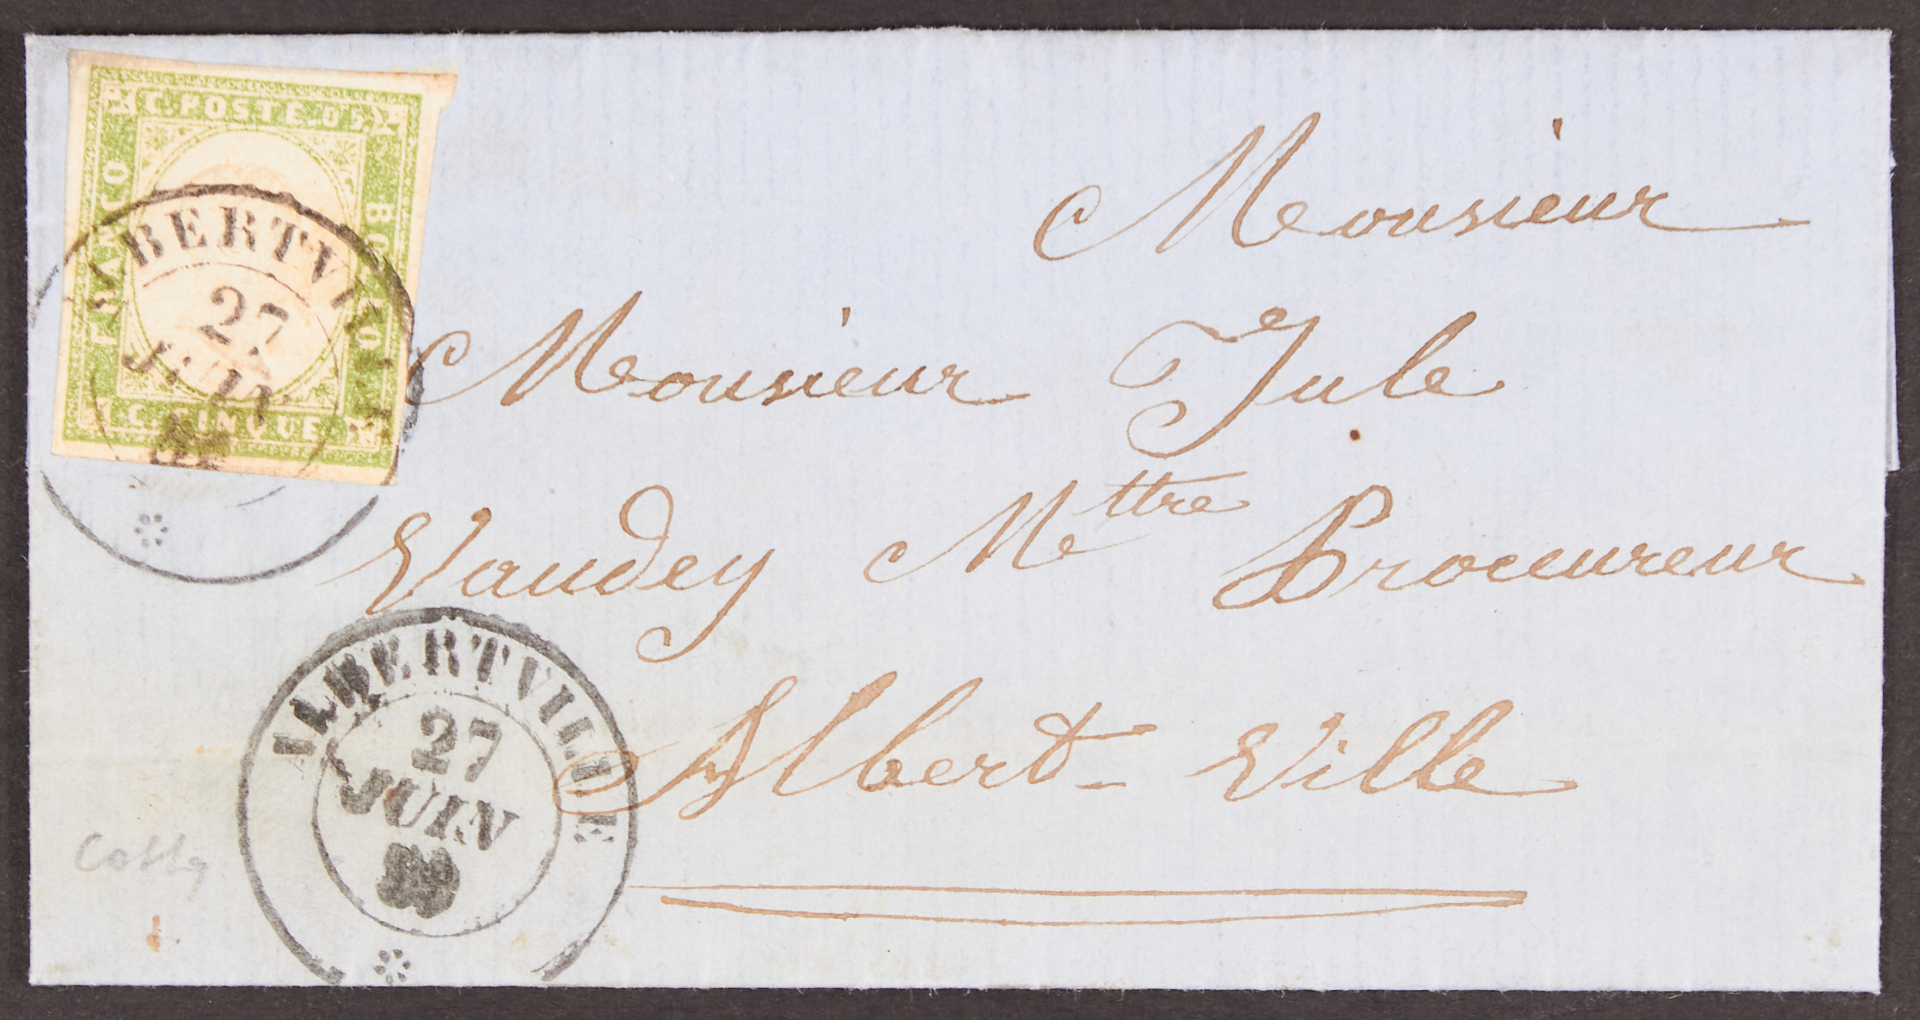 C. POSTE. 05
FRANCO
BOLLO
C. CINQUE.
ALBERTVILLE
27
JUIN
Monsieur
Monsieur Jule
Vaudey Mttre Procureur
Albert-Ville
ALBERTVILLE
27
JUIN